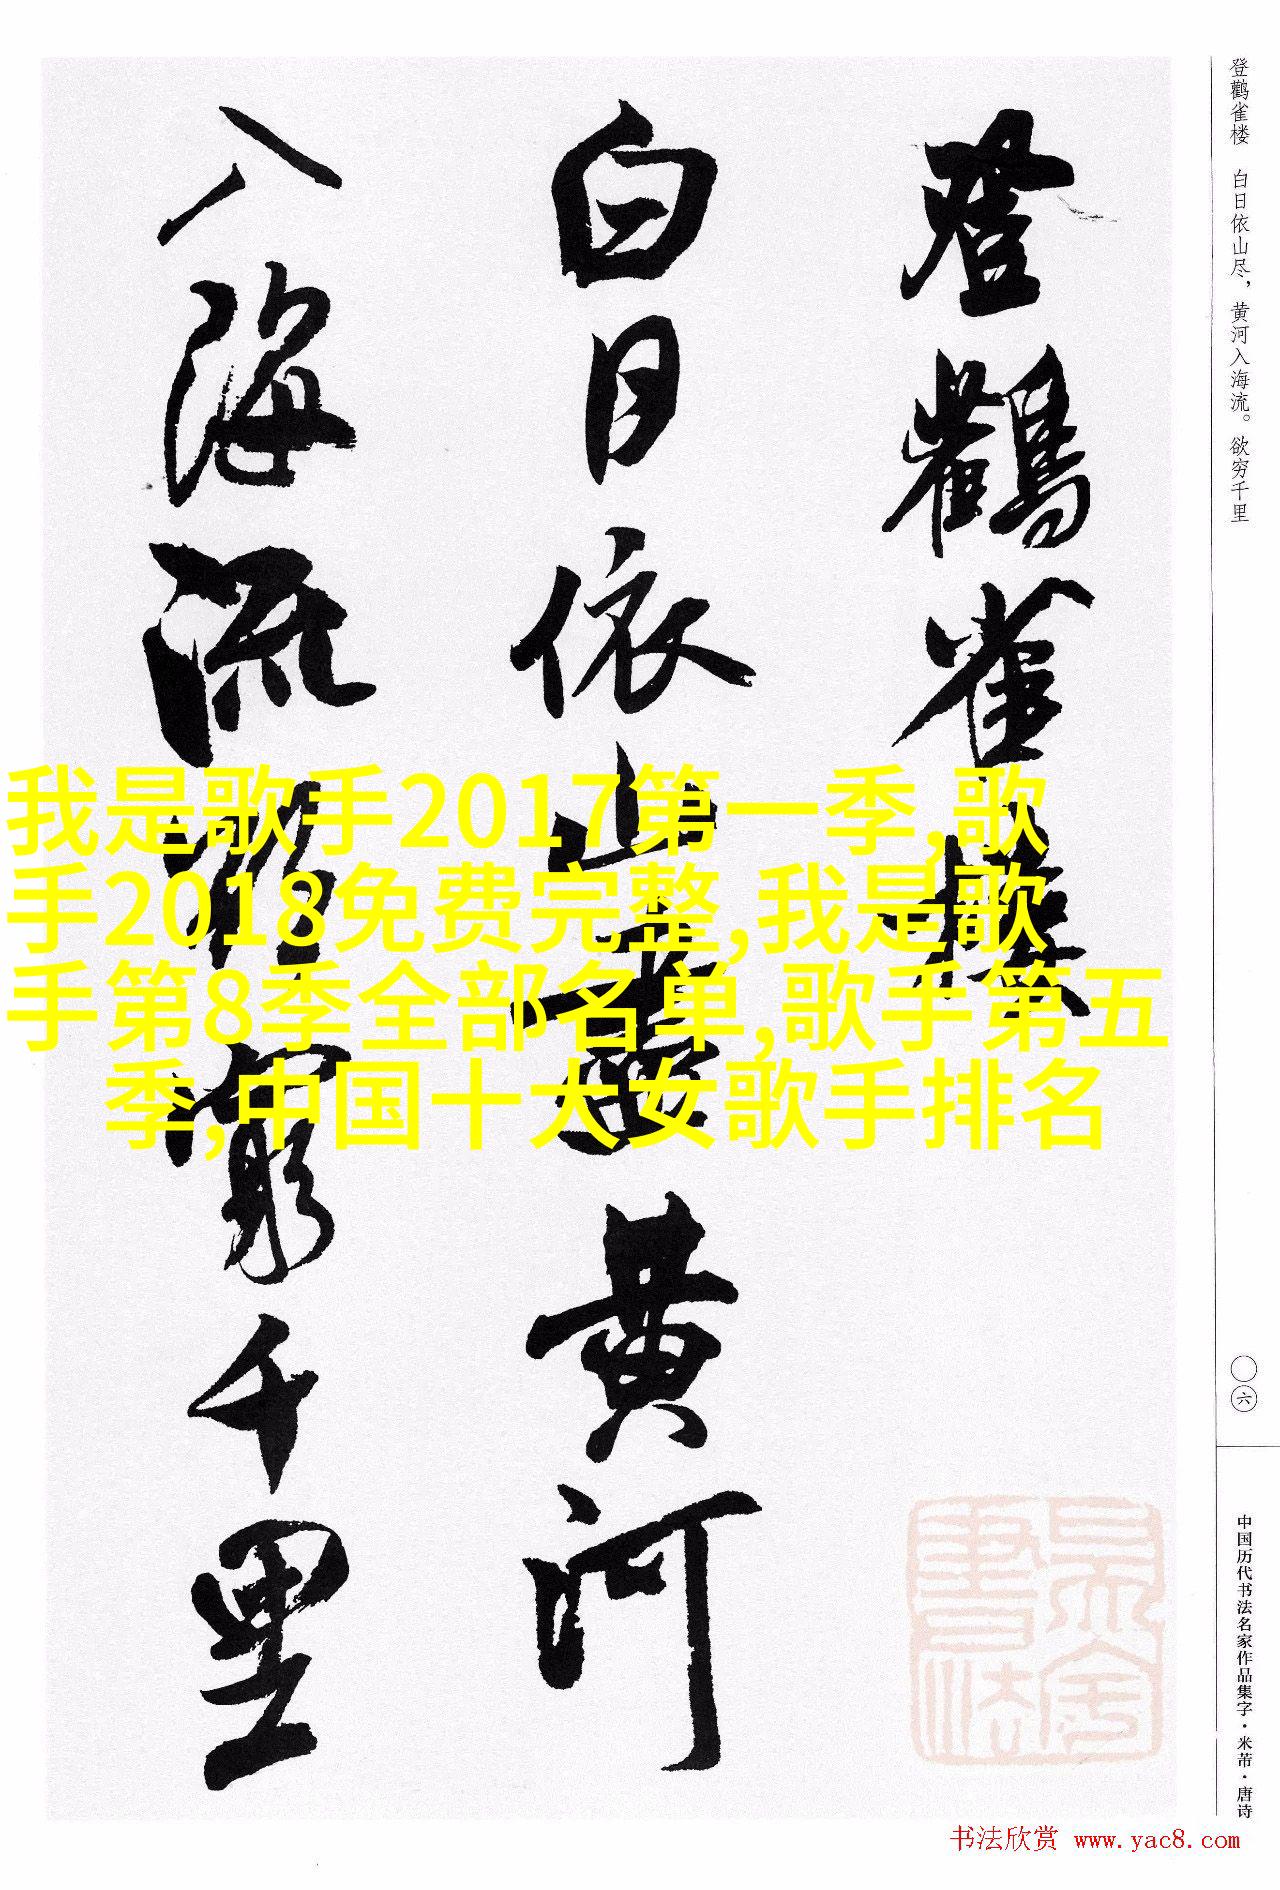 登鹳雀楼 白日依山尽，黄河入海流。欲穷千里
登鸛雀樓
白日依山盡黄河
入海流欲窮千里
我是歌手2017第一季,歌
手2018免费完整,我是歌
手第8季全部名单,歌手第五
季,中国十大女歌手排名
〇六
中国历代书法名家作品集字·米芾·唐诗
书法欣赏 www.yac8.com